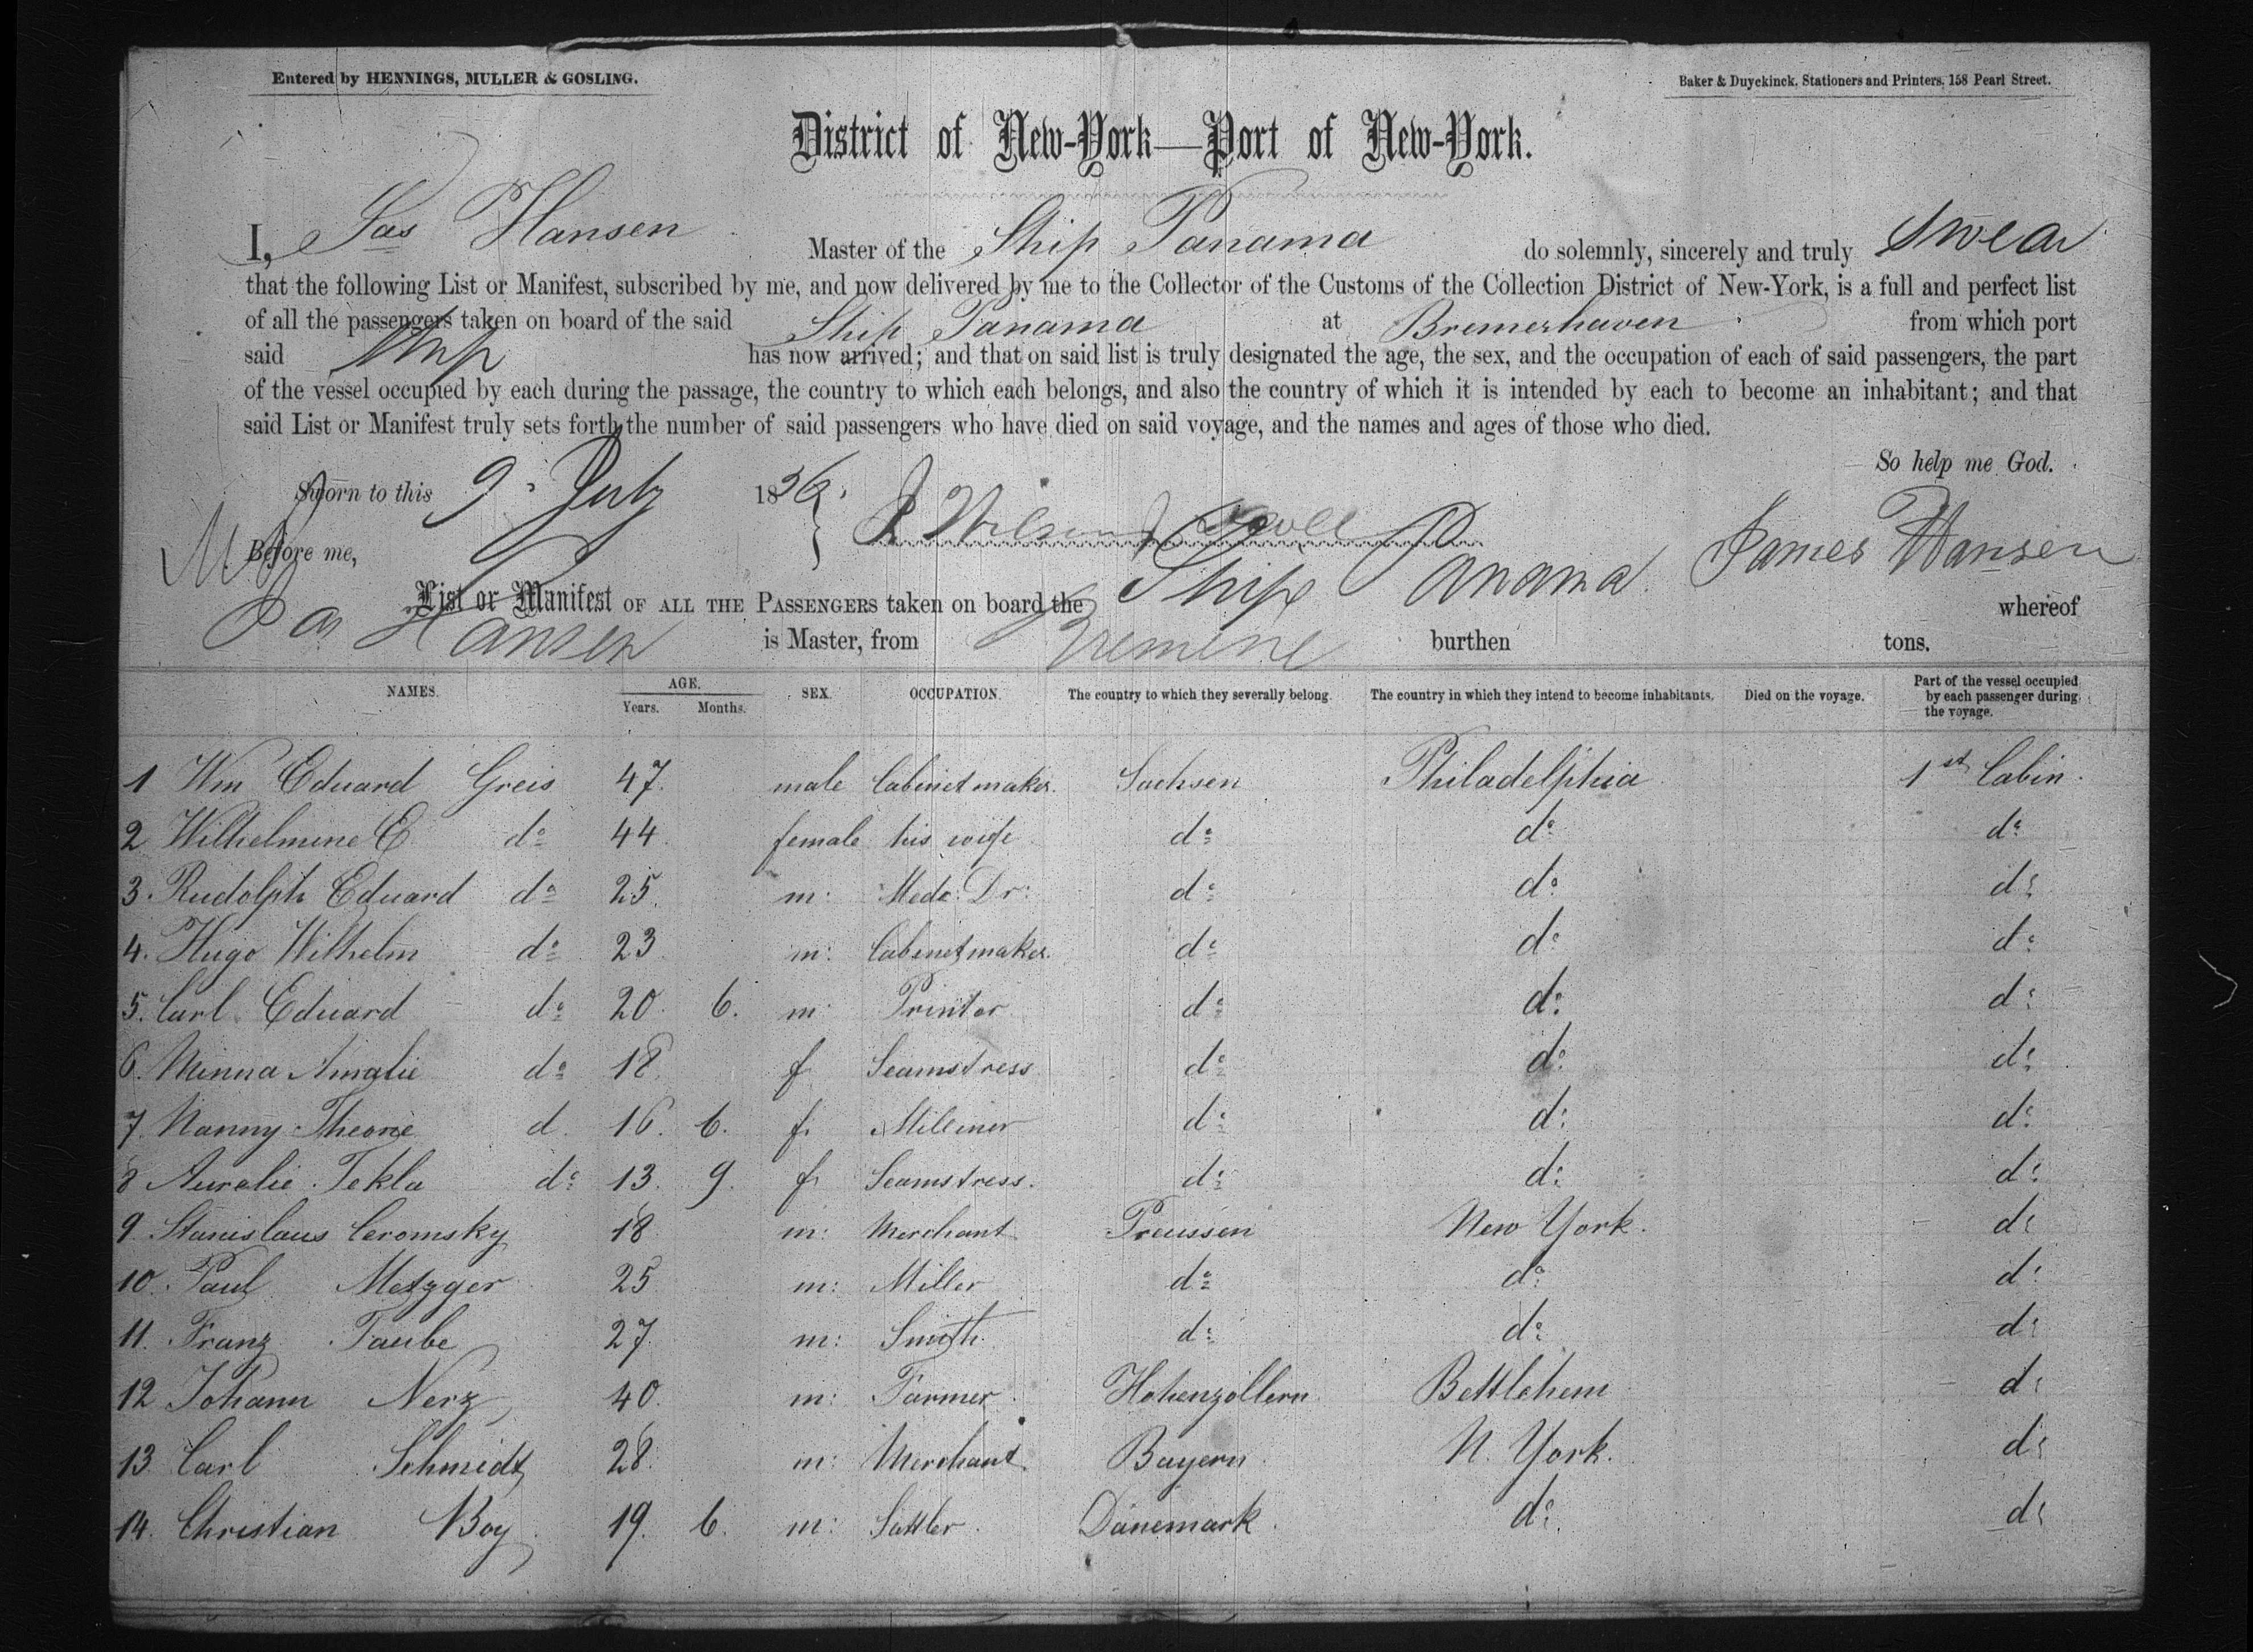 Entered by HENNINGS, MULLER & GOSLING.
Baker & Duyckinck, Stationers and Printers, 158 Pearl Street.
District of New-York—Port of New-York.
I, Jas Hansen Master of the Ship Panama do solemnly, sincerely and truly Swear
that the following List or Manifest, subscribed by me, and now delivered by me to the Collector of the Customs of the Collection District of New-York, is a full and perfect list
of all the passengers taken on board of the said Ship Panama at Bremerhaven from which port
said Ship has now arrived; and that on said list is truly designated the age, the sex, and the occupation of each of said passengers, the part
of the vessel occupied by each during the passage, the country to which each belongs, and also the country of which it is intended by each to become an inhabitant; and that
said List or Manifest truly sets forth the number of said passengers who have died on said voyage, and the names and ages of those who died.
So help me God.
Sworn to this 9. July 1856.
Before me, James Hansen
List or Manifest OF ALL THE PASSENGERS taken on board the Ship Panama whereof
Jas Hansen is Master, from burthen tons.
NAMES. AGE. Years. Months. SEX. OCCUPATION. The country to which they severally belong. The country in which they intend to become inhabitants. Died on the voyage. Part of the vessel occupied by each passenger during the voyage.
1 Wm Eduard Greis 47. male Cabinetmaker. Sachsen Philadelphia 1st Cabin.
2 Wilhelmine E. do 44. female his wife do do do
3. Rudolph Eduard do 25. m: Medc: Dr: do do do
4. Hugo Wilhelm do 23 m: Cabinetmaker. do do do
5. Carl Eduard do 20. 6. m: Printer do do do
6. Minna Amalie do 18. f Seamstress do do do
7. Nanny Theone d. 16. 6. f. Milliner do do do
8 Aurelie Tekla do 13. 9. f. Seamstress. do do do
9. Stanislaus Ceromsky 18 m: Merchant Preussen New York. do
10. Paul Metzger 25 m: Miller do do do
11. Franz Taube 27. m: Smith. do do do
12 Johann Nerz 40. m: Farmer. Hohenzollern Bettlehem do
13. Carl Schmidt 28. m: Merchant Bayern N. York. do
14. Christian Boy 19. 6. m: Sattler Dänemark do do